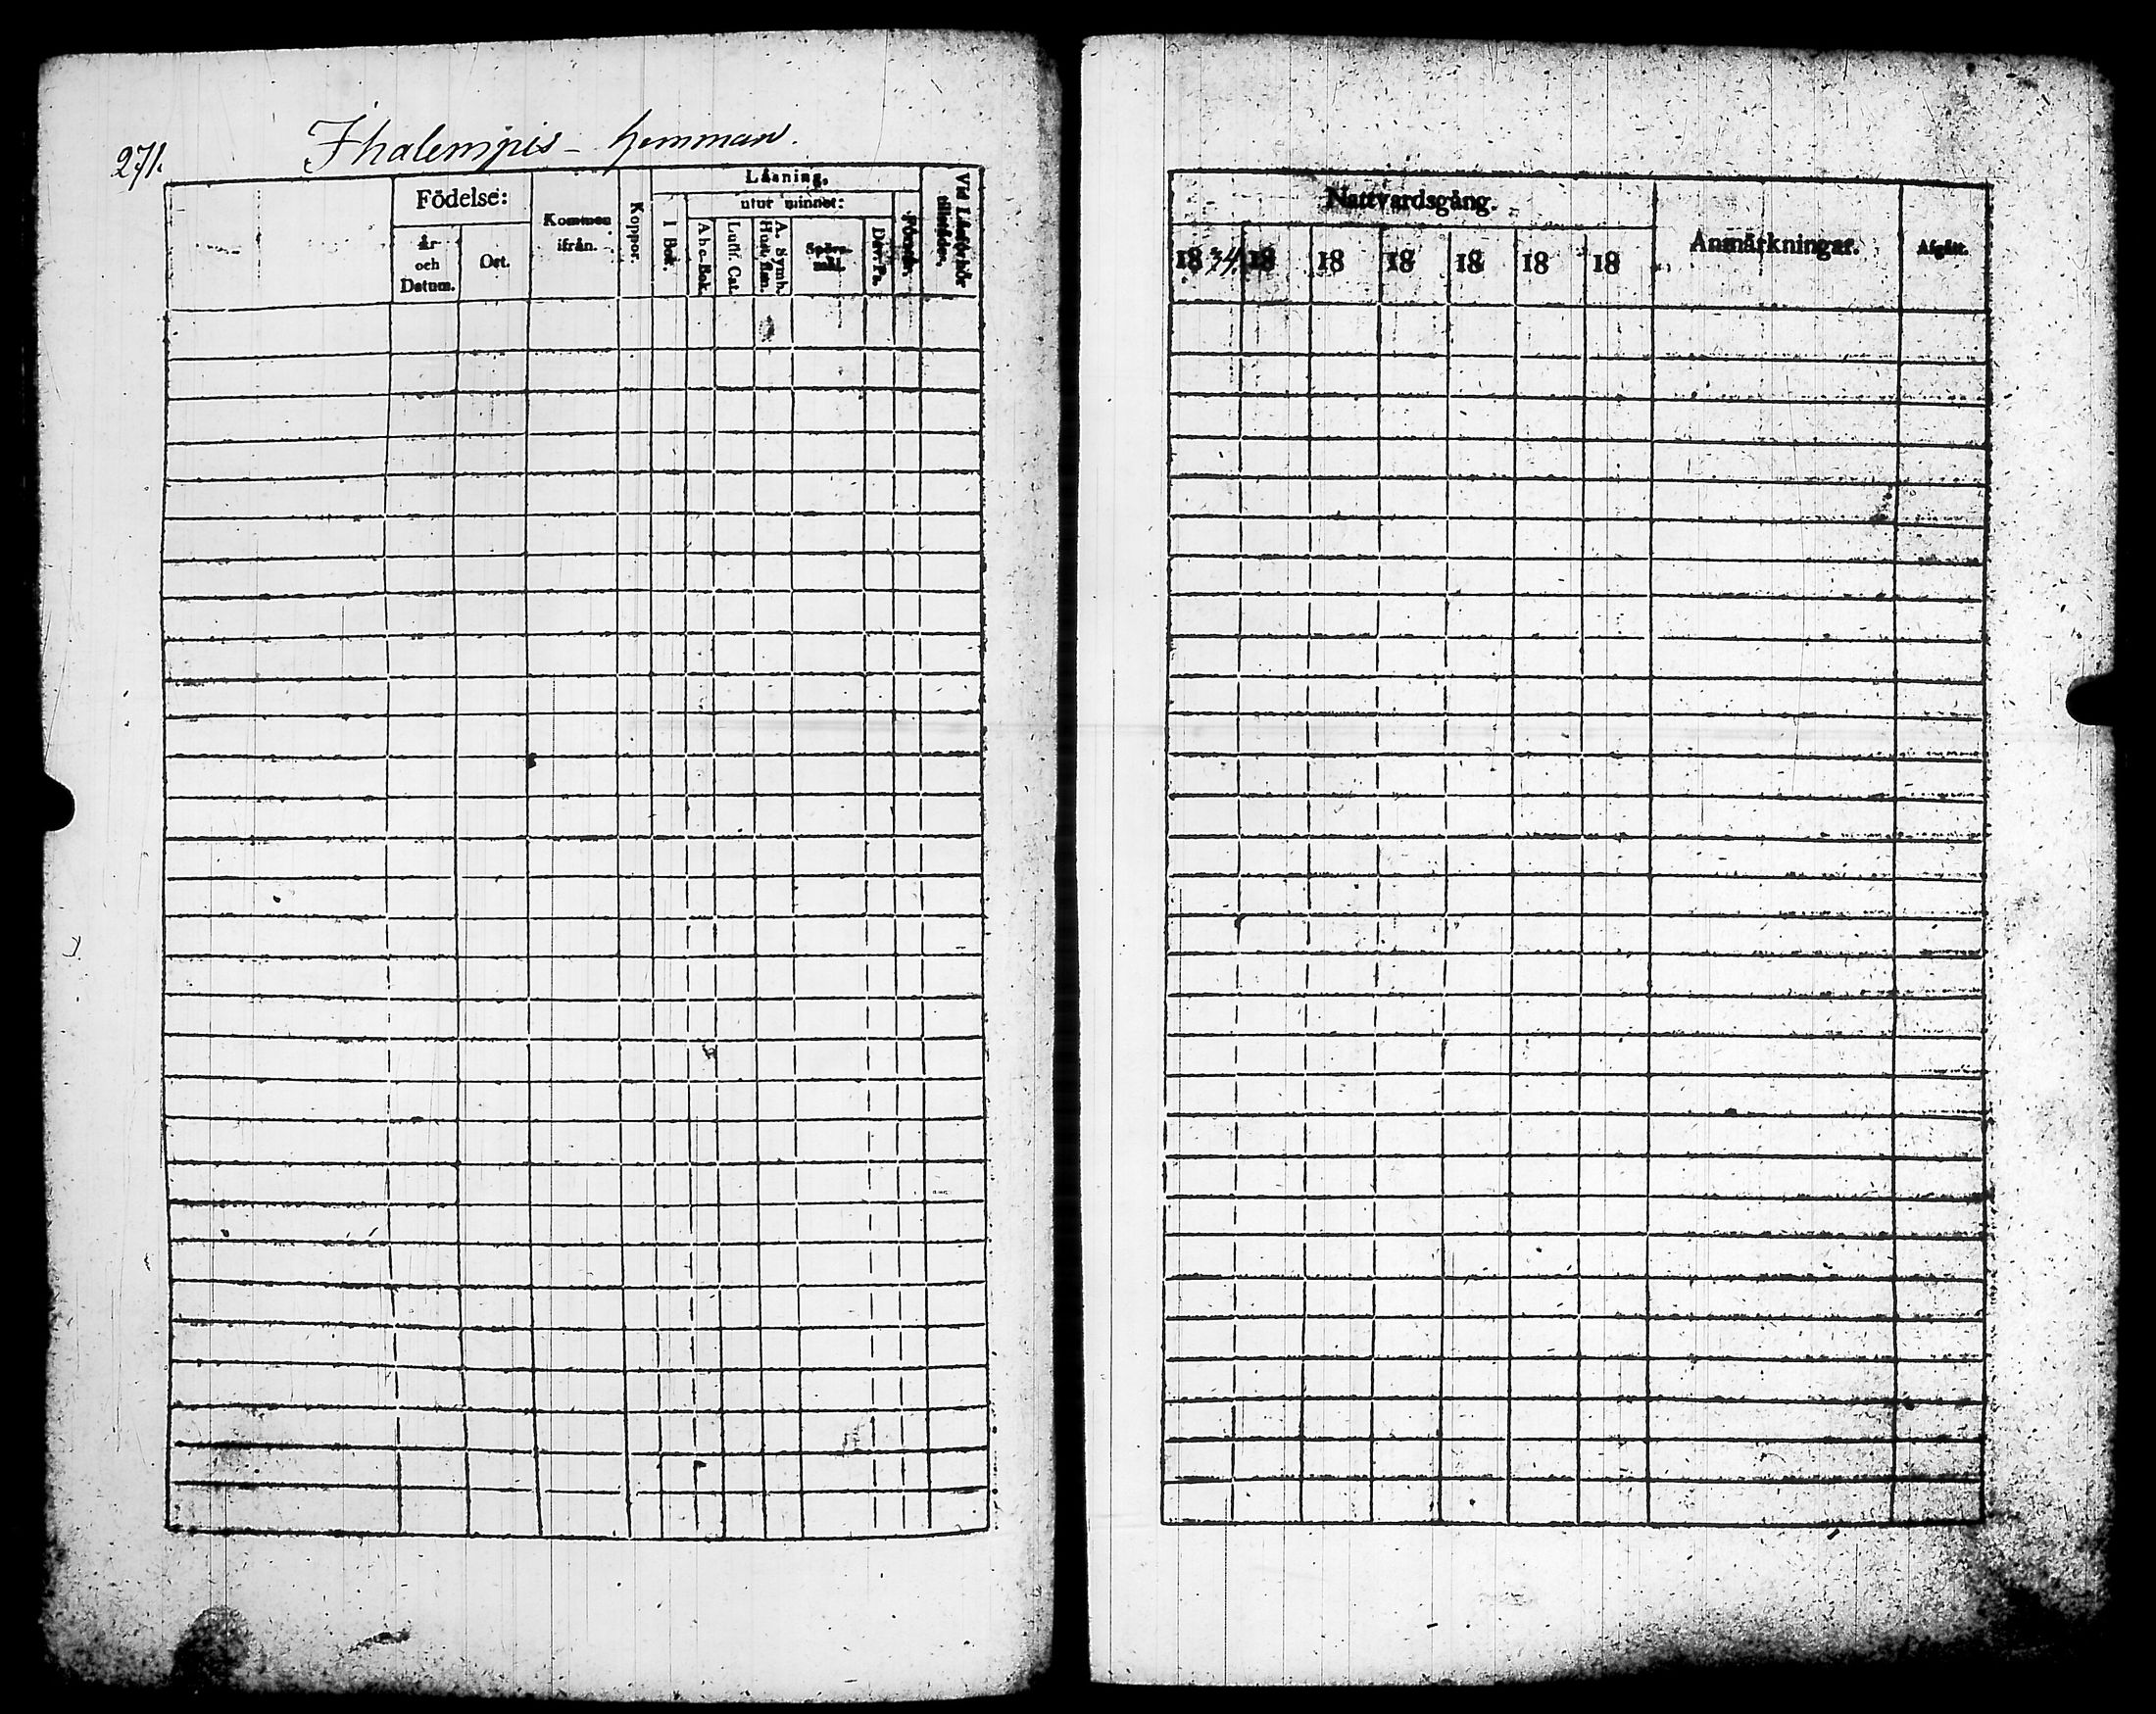 271. Ihalempis - hemman.
Födelse:
år
och
Datum.
Ort.
Kommen
ifrån.
Koppor.
Läsning.
utur minnet:
I Bok.
Abc-Bok.
Luth. Cat.
A. Symb.
Hust.
Spörs-
mål.
Dav. Ps.
Vid Läsförhör
Nattvardsgång.
1834. 18 18 18 18 18 18
Anmärkningar.
Afgått.